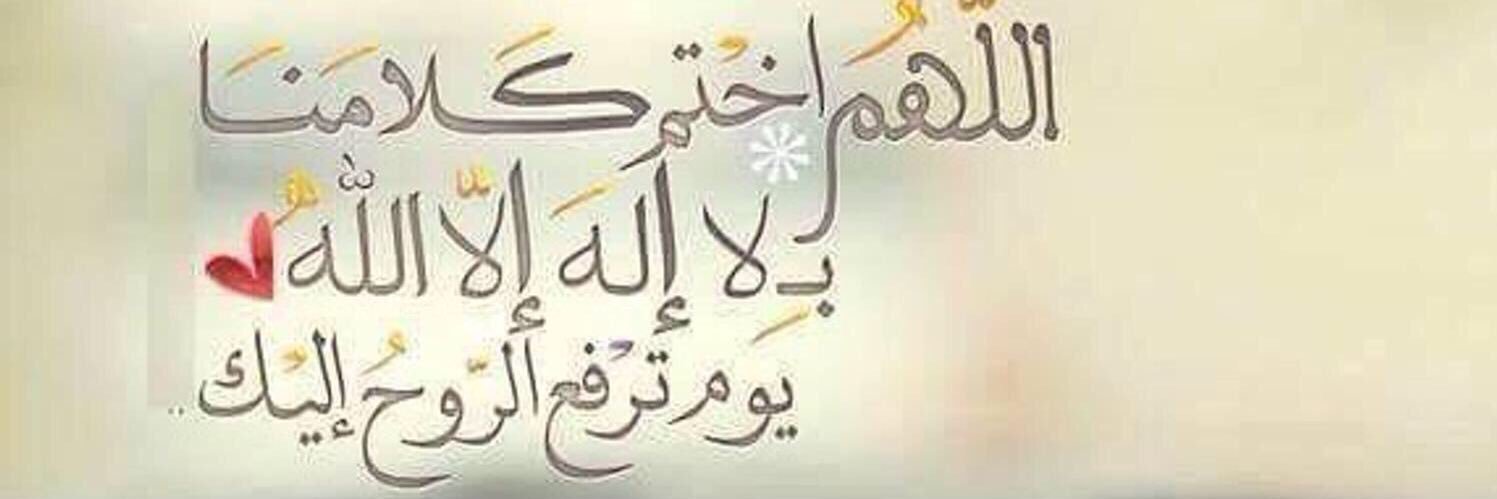 اللّهُم اخْتم كَلامَنَا
بـ لا إلهَ إلّا اللّٰهُ
يَوم ترْفع الرّوحُ إليْك ..